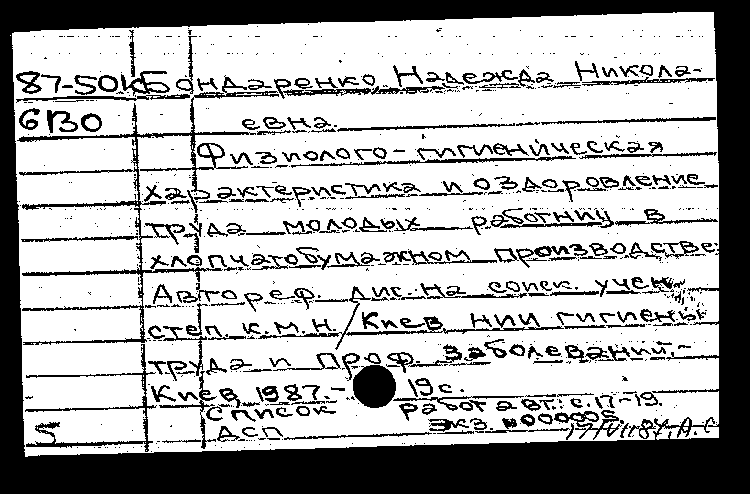 87-50К Бондаренко, Надежда Никола-
6130 евна.
Физиолого-гигиеническая
характеристика и оздоровление
труда молодых работниц в
хлопчатобумажном производстве:
Автореф. дис. на соиск. учен.
степ. к.м.н. Киев НИИ гигиены
труда и проф. заболеваний.-
Киев, 1987.- 19с.
Список работ авт.: с.17-19.
5 ДСП Экз. №000005